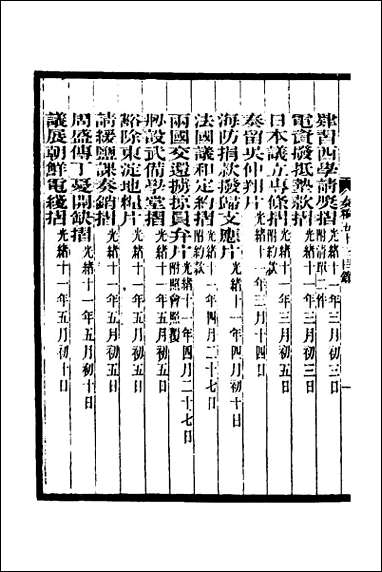 肄習西學請獎摺 附清單二件 光緒十一年三月初三日
電資撥抵墊款摺 光緒十一年三月初三日
日本議立專條摺 附約款 光緒十一年三月初五日
奏留吳仲翔片 光緒十一年三月十四日
海防捐款撥歸支應片 光緒十一年四月初十日
法國議和定約摺 附約款 光緒十一年四月二十七日
兩國交還擄掠員弁片 附照會照覆 光緒十一年四月二十七日
創設武備學堂摺 光緒十一年五月初五日
豁除東淀地糧片 光緒十一年五月初五日
請緩鹽課奏銷摺 光緒十一年五月初五日
周盛傳丁憂開缺摺 光緒十一年五月初十日
議展朝鮮電綫摺 光緒十一年五月初十日